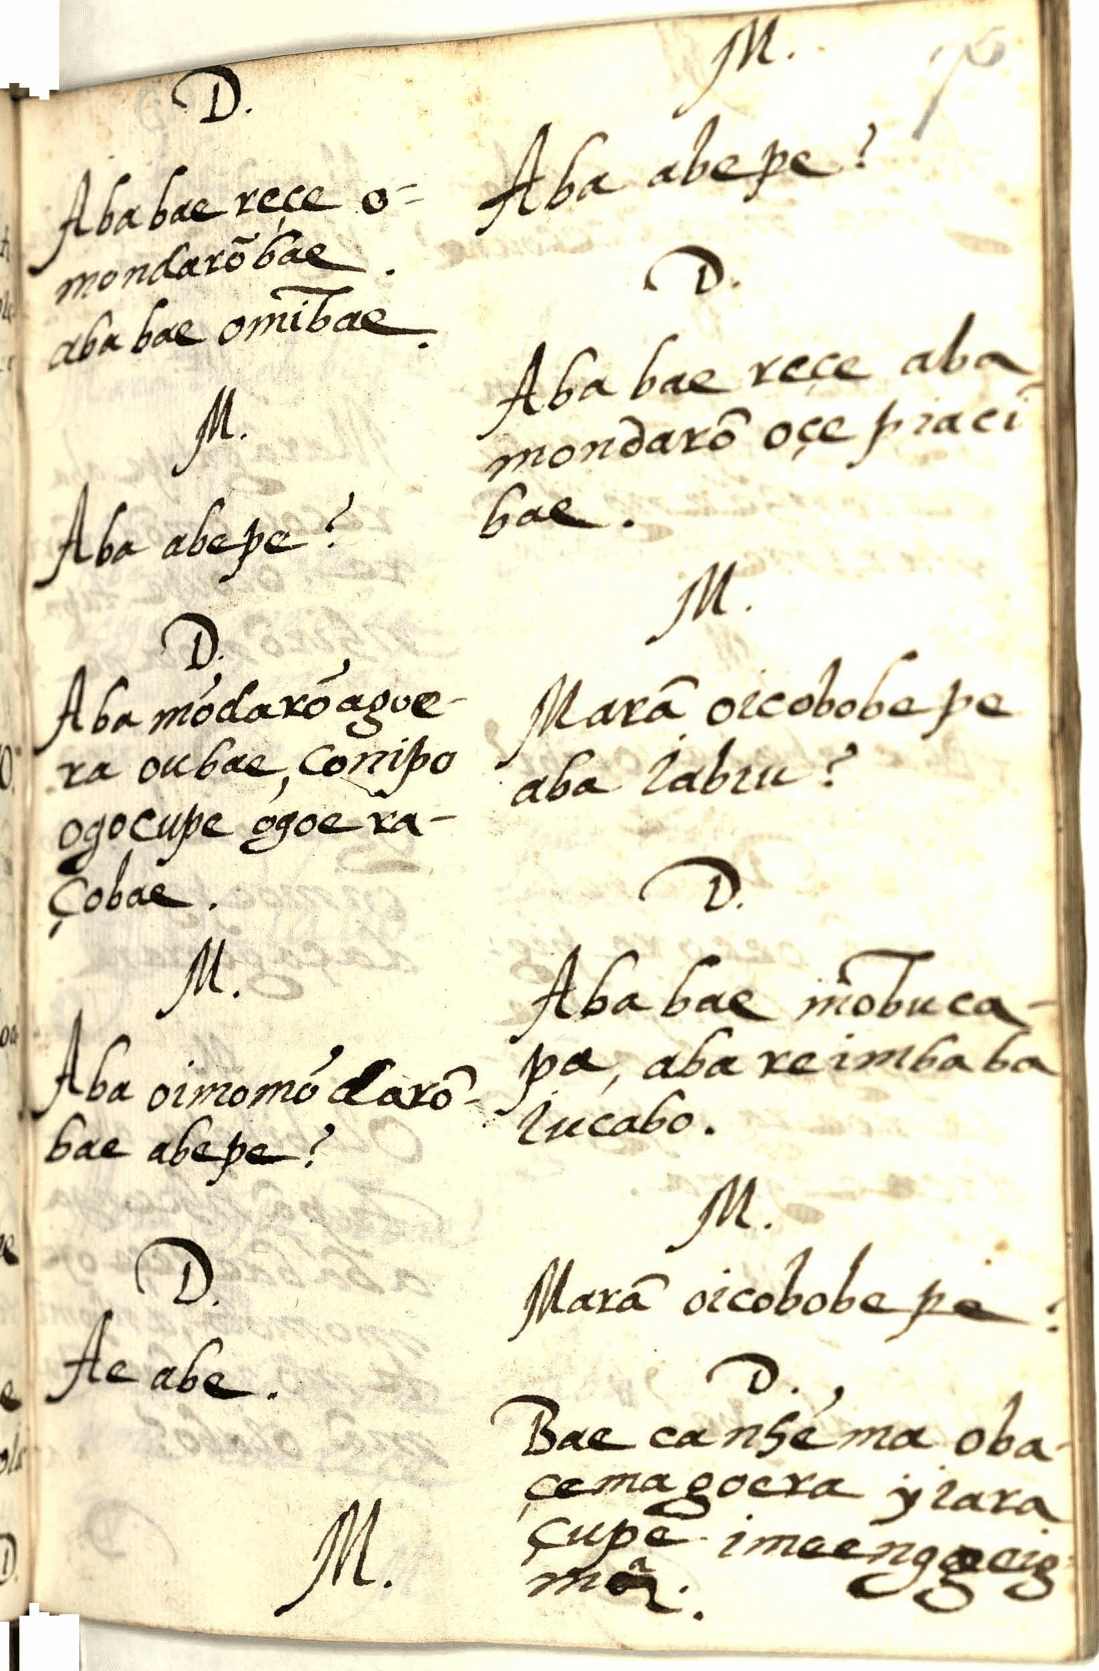 D.
Aba bae reçe o-
mondarõbae.
aba bae omĩbae.
M.
Aba abepe?
D.
Aba mõdarõague-
ra oubae, conipo
ogocupe ogoera-
çobae.
M.
Aba oimomõdarõ-
bae abepe?
D.
Ae abe.
M.
M.
Aba abepe?
D.
Aba bae reçe aba
mondarõ oçe piaci
bae.
M.
Marã oicobobepe
aba iabiu?
D.
Aba bae mõbuca-
pa, aba reimbaba
iucabo.
M.
Marã oicobobepe?
D.
Bae canhéma oba-
çemagoera yiara
çupe imeenggeig